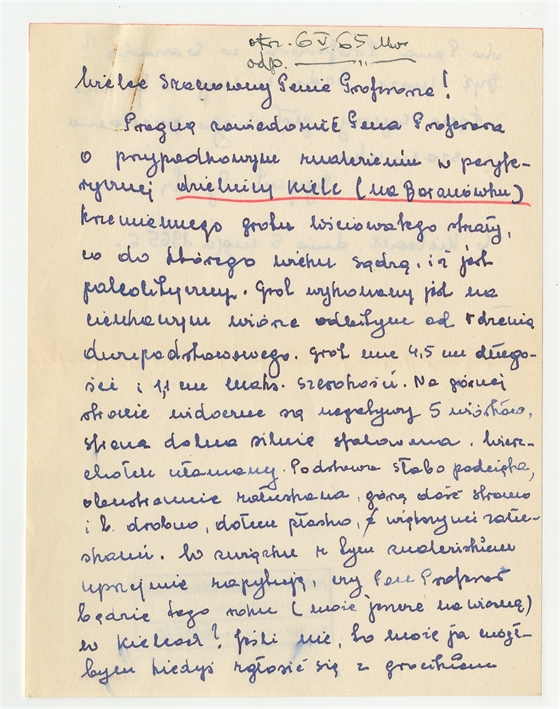 otrz. 6 V 65
odp.
Wielce Szanowny Panie Profesorze!
Pragnę zawiadomić Pana Profesora
o przypadkowym znalezieniu w peryfe-
ryjnej dzielnicy Kielc (na Baranówku)
krzemiennego grotu liściowatego strzały,
co do którego wieku sądzę, iż jest
paleolityczny. Grot wykonany jest na
cienkawym wiórze odbitym od rdzenia
dwupiętrowego. Grot ma 4,5 cm długo-
ści i 1,1 cm maks. szerokości. Na górnej
stronie widoczne są negatywy 5 wiórków,
strona dolna silnie spatynowana. Wierz-
chołek ułamany. Podstawa słabo podcięta,
obustronnie załuskana, górą dość stromo
i b. drobno, dołem płasko, z większymi zału-
skami. W związku z tym znaleziskiem
uprzejmie zapytuję, czy Pan Profesor
będzie tego roku (może jeszcze na wiosnę)
w Kielcach? Jeśli nie, to może ja mógł-
bym kiedyś zgłosić się z grocikiem